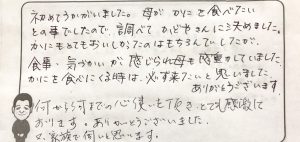 初めてうかがいました。母がかにを食べたい
との事でしたので、調べてかどやさんに決めました。
かにもとてもおいしかったのはもちろんでしたが、
食事・気づかいが感じられ母も感動していました。
かにを食べにくる時は、必ず来たいと思いました。
ありがとうございます
何から何までの心使いも頂きとても感激して
おります。ありがとうございました。
又、家族で伺いと思います。